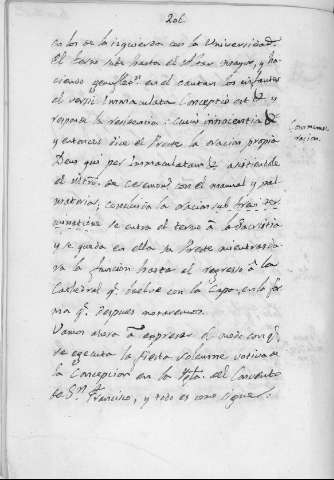 206.
en los de la izquierda con la Universidad.
El terno sube hasta el Altar mayor, y ha-
ciendo genuflexn. en el cantan los infantes
el versic Immaculata Conceptio est & y
responde la residencia: Cujus innocentia &
y entonces dice el Preste la oracion propia
Deus qui per Immaculatam & asistiendo
el Mtro. de Cerem. con el manual y pal-
matoria; concluida la oracion sub
se entra el terno â la Sacristia
y se queda en ella su Preste mientras du-
ra la funcion hasta el regreso â la
Catedral q. buelve con la Capa, en la for
ma q. despues notaremos.
Vamos ahora â expresar el modo con q.
se egecuta la fiesta Solemne votiva de
la Concepcion en la Ygta. del Convento
de Sn. Francisco, y todo es como sigue.
Conmemo-
racion.